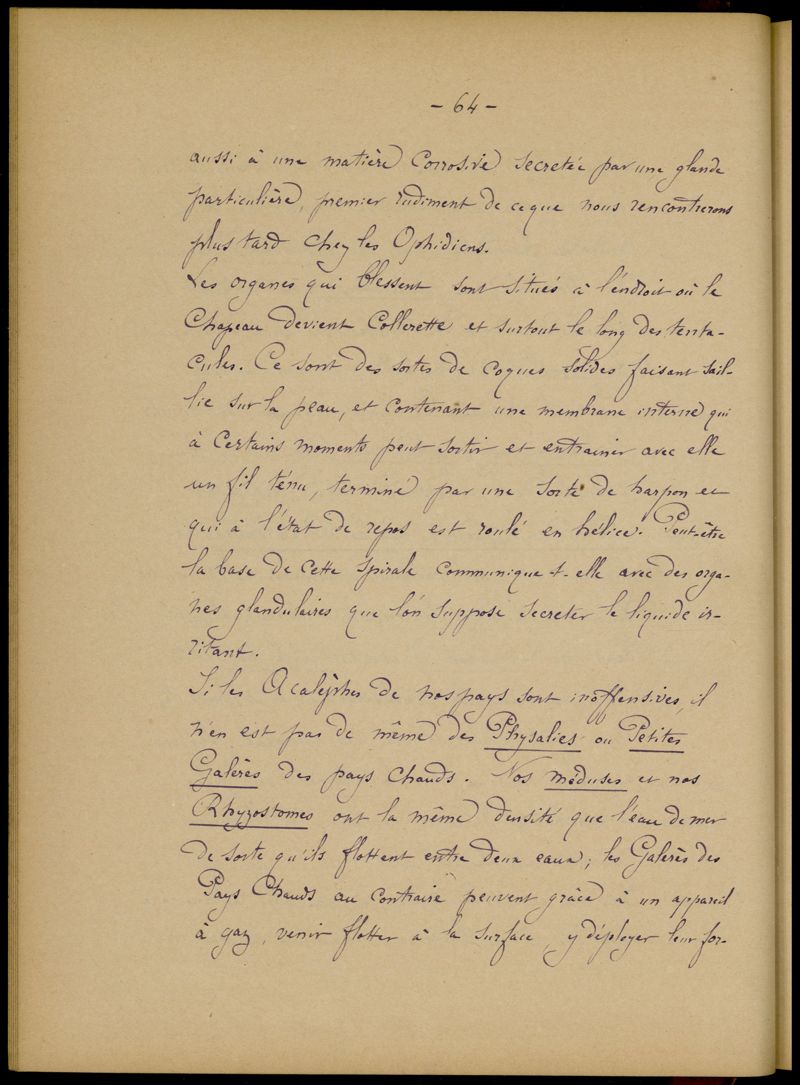 - 64 -
aussi à une matière corrosive secretée par une glande
particulière, premier rudiment de ce que nous rencontrerons
plus tard chez les Ophidiens.
Les organes qui blessent sont situés à l'endroit où le
Chapeau devient Collerette et surtout le long des tenta-
cules. Ce sont des sortes de coques solides faisant sail-
lie sur la peau, et contenant une membrane interne qui
à certains moments peut sortir et entrainer avec elle
un fil ténu, terminé par une sorte de harpon et
qui à l'état de repos est roulé en hélice. Peut-être
la base de cette spirale communique t-elle avec des orga-
nes glandulaires que l'on suppose secreter le liquide ir-
ritant.
Si les Acalèphes de nos pays sont inoffensives, il
n'en est pas de même des Physalies ou Petites
Galères des pays chauds. Nos méduses et nos
Rhyzostomes ont la même densité que l'eau de mer
de sorte qu'ils flottent entre deux eaux; les Galères des
Pays Chauds au contraire peuvent grâce à un appareil
à gaz, venir flotter à la surface, y déployer leur for-